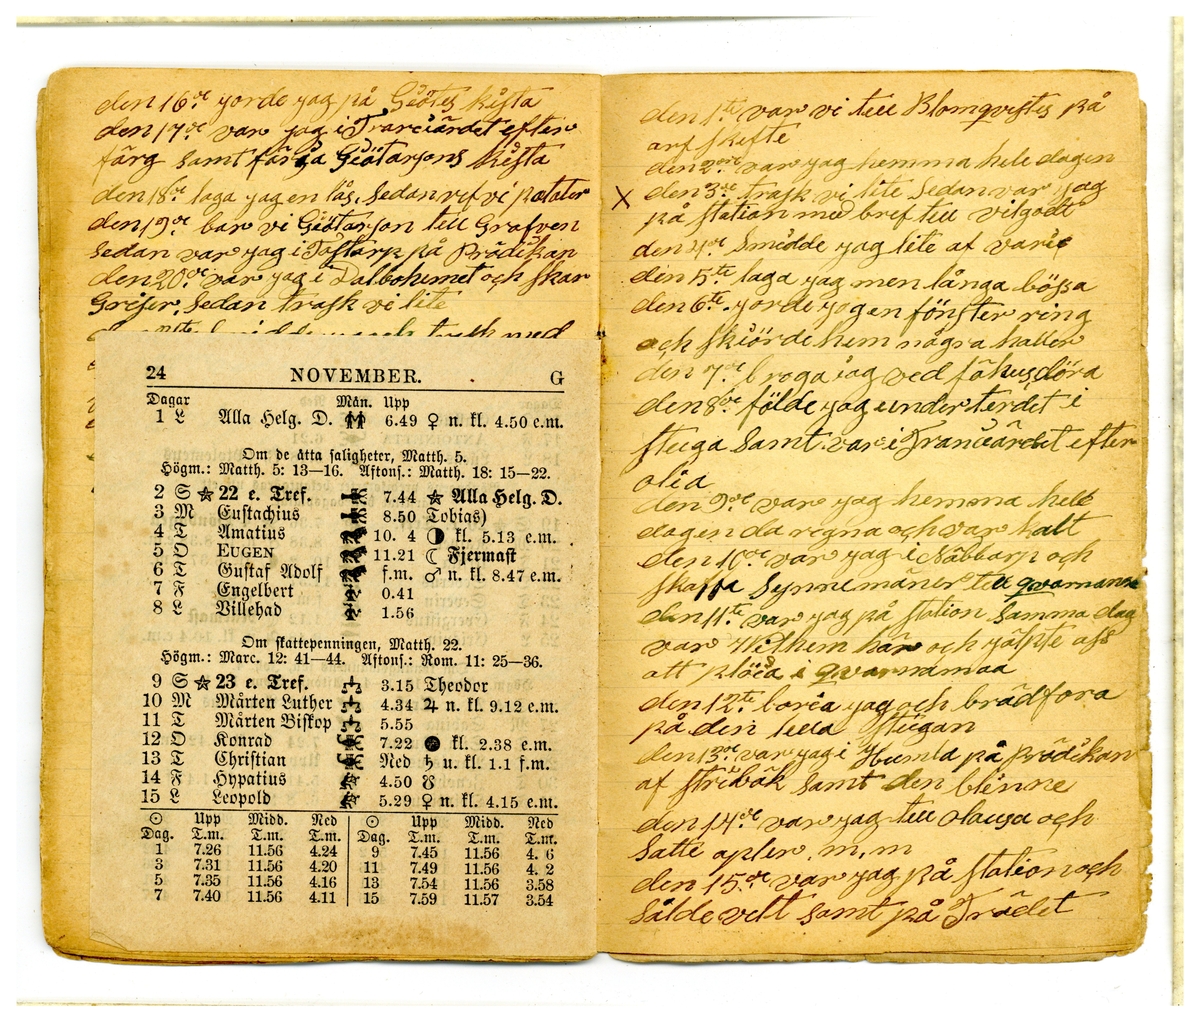 den 16de yorde yag på Giötes kista
den 17de var yag i Tranciärdet efter
färg samt färga Giötarsons kista
den 18de laga yag en lås, Sedan ref vi potater
den 19de bar vi Giötarson till Grafven
Sedan var yag i Tostarp på Prädikan
den 20de var yag i Dalbohemet och skar
Grejer, Sedan trask vi lite
24 NOVEMBER. G
Dagar Mån. Upp
1 L Alla Helg. D. 6.49 ♀ n. kl. 4.50 e.m.
Om de åtta saligheter, Matth. 5.
Högm.: Matth. 5: 13—16. Aftons.: Matth. 18: 15—22.
2 S ★ 22 e. Tref. 7.44 ★ Alla Helg. D.
3 M Eustachius 8.50 Tobias)
4 T Amatius 10. 4 ◑ kl. 5.13 e.m.
5 O EUGEN 11.21 ☾ Fjermast
6 T Gustaf Adolf f.m. ♂ n. kl. 8.47 e.m.
7 F Engelbert 0.41
8 L Villehad 1.56
Om skattepenningen, Matth. 22.
Högm.: Marc. 12: 41—44. Aftons.: Rom. 11: 25—36.
9 S ★ 23 e. Tref. 3.15 Theodor
10 M Mårten Luther 4.34 ♃ n. kl. 9.12 e.m.
11 T Mårten Biskop 5.55
12 O Konrad 7.22 ● kl. 2.38 e.m.
13 T Christian Ned ♄ u. kl. 1.1 f.m.
14 F Hypatius 4.50 ☋
15 L Leopold 5.29 ♀ n. kl. 4.15 e.m.
☉ Upp Midd. Ned ☉ Upp Midd. Ned
Dag. T.m. T.m. T.m. Dag. T.m. T.m. T.m.
1 7.26 11.56 4.24 9 7.45 11.56 4. 6
3 7.31 11.56 4.20 11 7.49 11.56 4. 2
5 7.35 11.56 4.16 13 7.54 11.56 3.58
7 7.40 11.56 4.11 15 7.59 11.57 3.54
den 1te var vi till Blomqvistes på
arfskifte
den 2dre var yag hemma hele dagen
X den 3de trask vi lite Sedan var yag
på station med bref till vilgodt
den 4de Smidde yag lite af varie
den 5te laga yag men långa bössa
den 6te yorde yag en fönster ring
och skiörde hem några haller
den 7de broga iag ved fähusdöra
den 8de földe yag under terdet i
stuga Samt var i Tranciärdet efter
olia
den 9de var yag hemma hele
dagen da regna och var kalt
den 10de var yag i Nabbarp och
skaffa Synnemäner till qvarnanna
den 11te var yag på station Samma dag
var Wilhem här och yälpte oss
att plöia i qvarnamaa
den 12te boria yag och brädfora
på den lella stugan
den 13de var yag i Humla på Prädikan
af stridbåk Samt den blinne
den 14de var yag till olausa och
Satte apler. m, m
den 15de var yag på station och
Sålde velt samt på Trädet